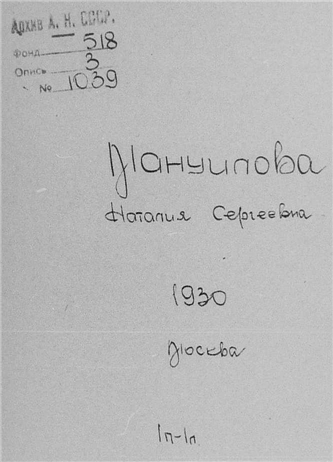 Архив А. Н. СССР.
Фонд 518
Опись 3
№ 1039
Мануилова
Наталия Сергеевна
1930
Москва
1п-1л